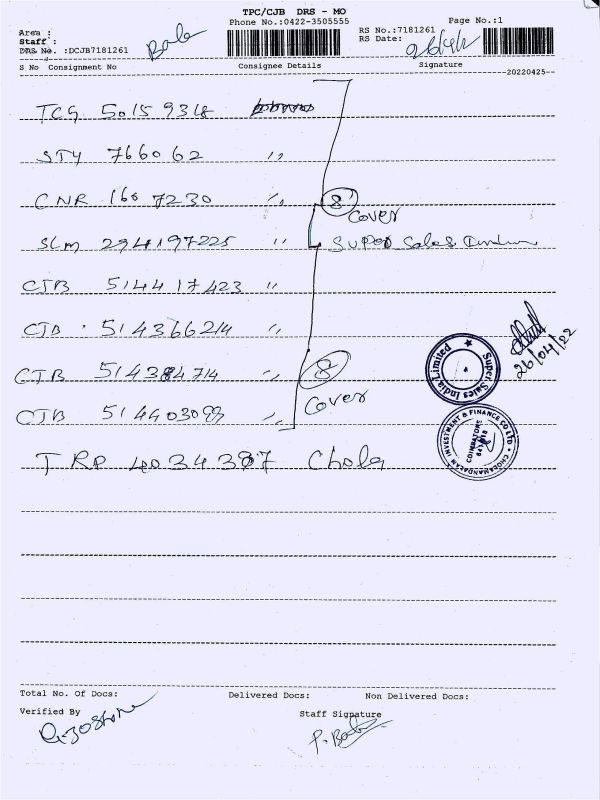 TPC/CJB DRS - MO
Phone No.:0422-3505555
Page No.:1
Area :
Staff :
Bala
DRS No. :DCJB7181261
RS No.:7181261
RS Date: 26/4/22
S No Consignment No Consignee Details Signature
20220425
TCG 50159318
STY 766062 "
CNR 1607230 "
8 Cover
SLM 294197225 " Super Sales
CJB 514417423 "
CJB 514366214 "
CJB 514384714 "
8 Cover
CJB 514403083 "
26/04/22
Super Sales India Limited
CHOLAMANDALAM INVESTMENT & FINANCE CO LTD
COIMBATORE
641 018
TRP 4034387 Chola
Total No. Of Docs: Delivered Docs: Non Delivered Docs:
Verified By Staff Signature